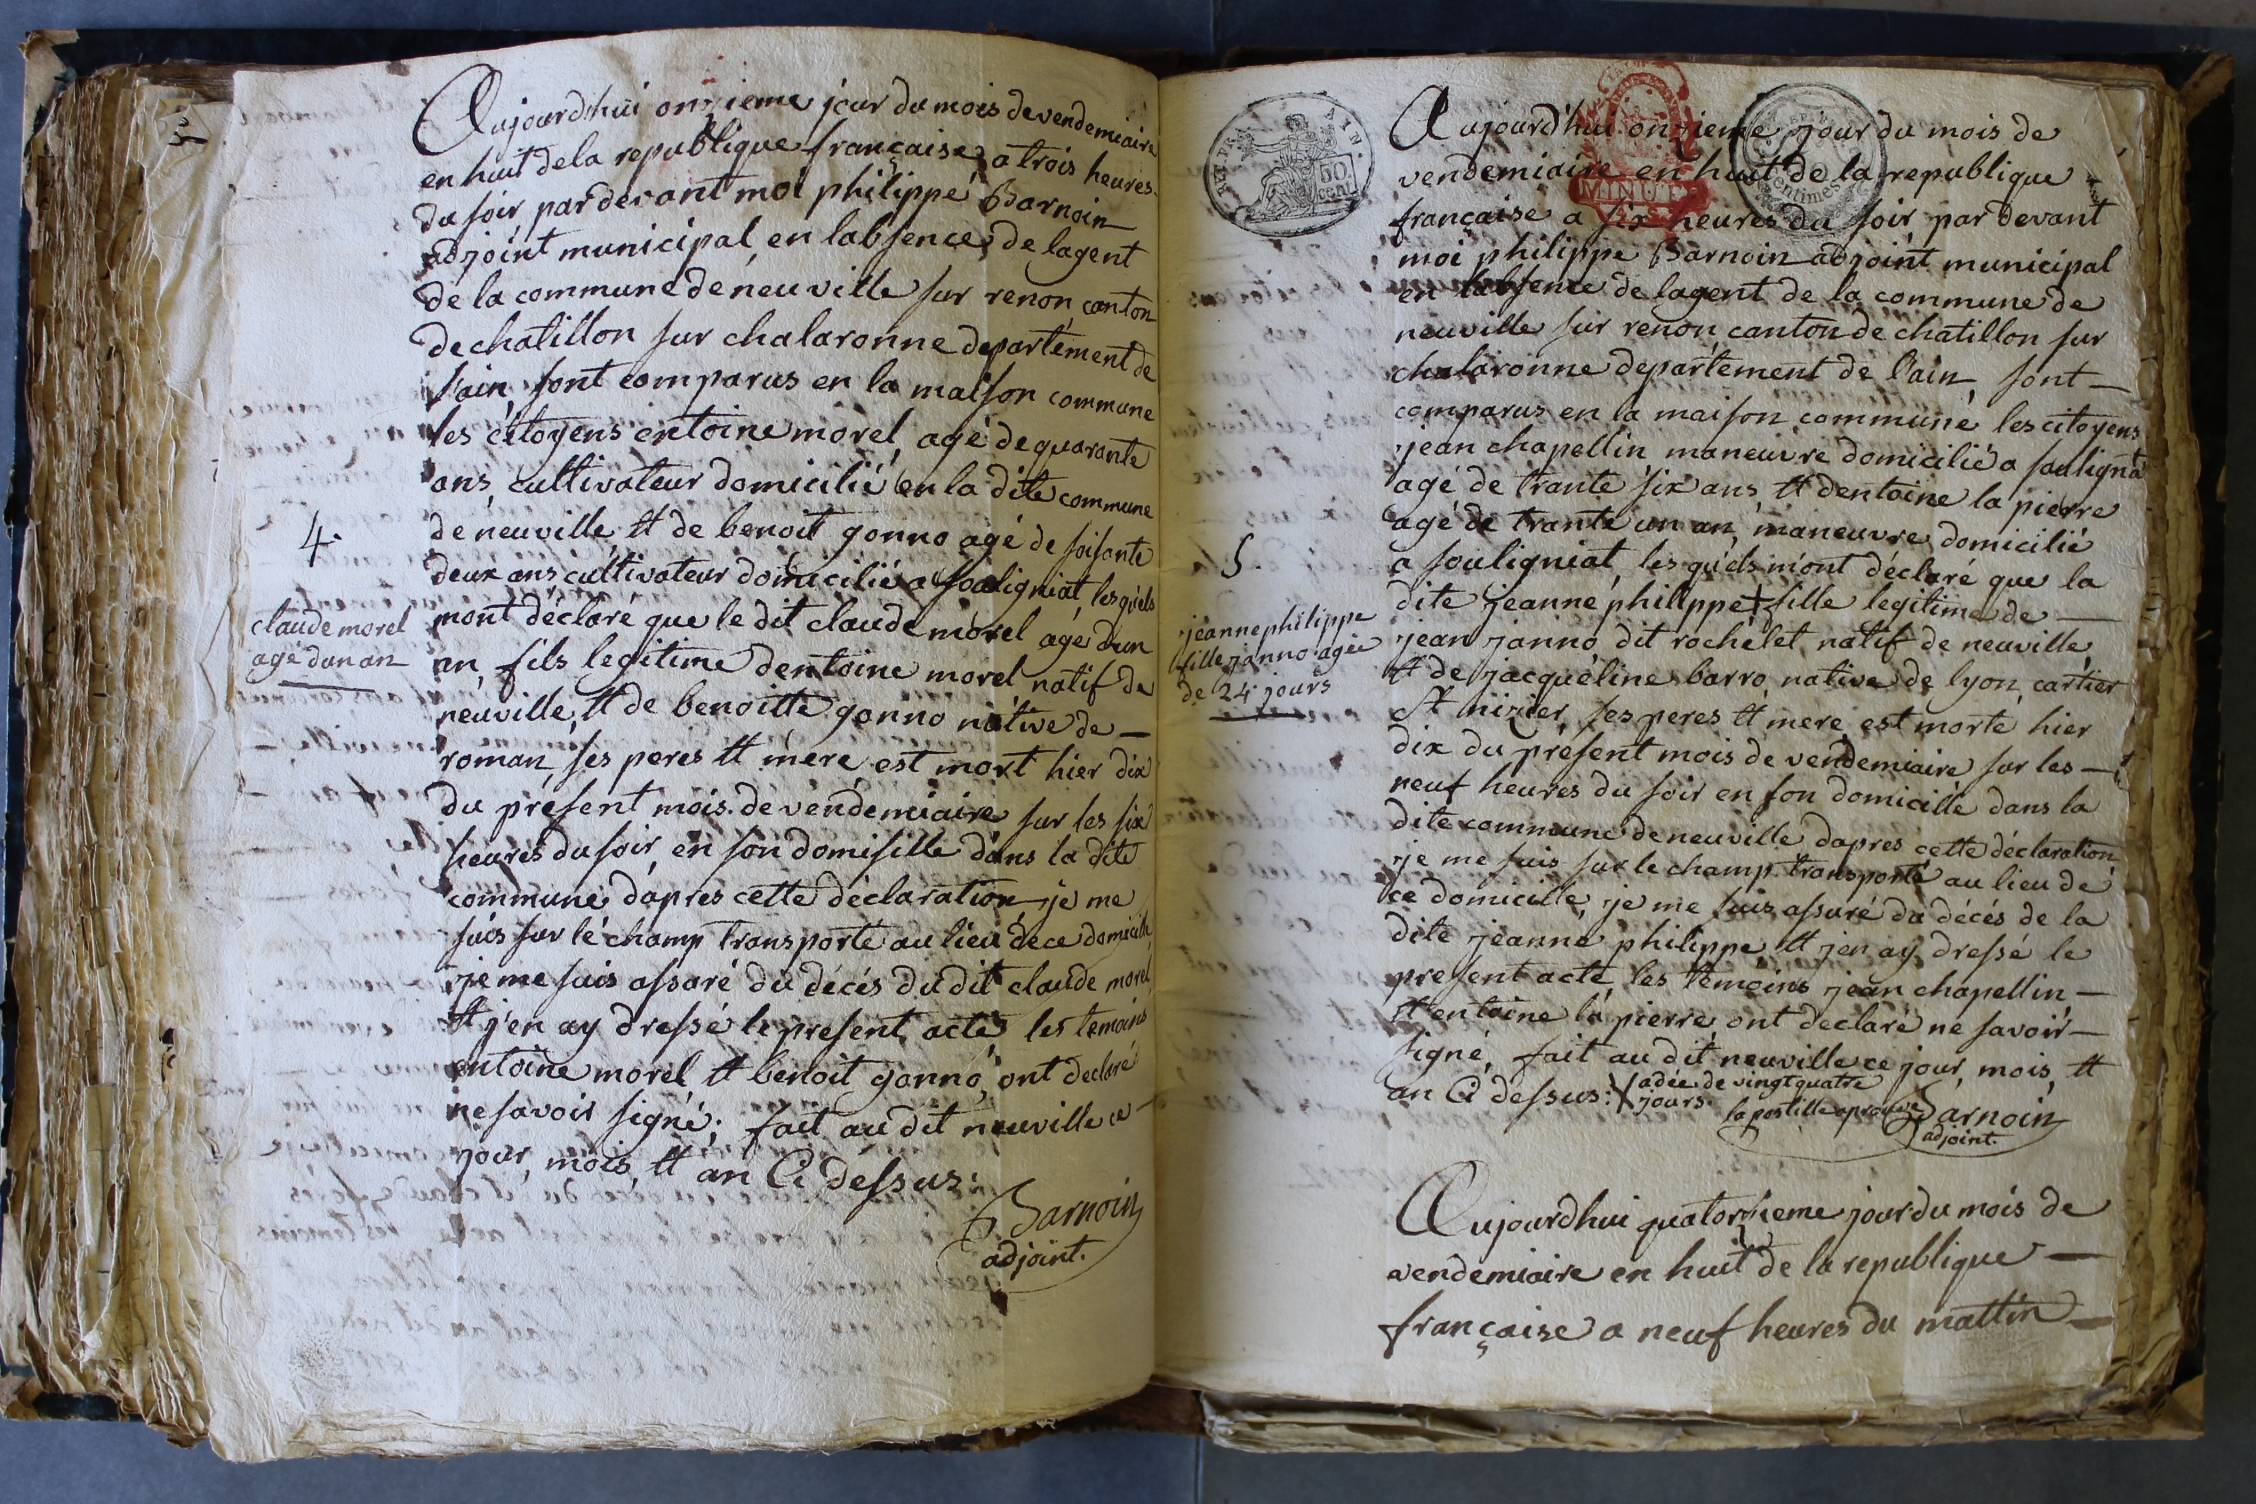 Aujourdhui onzieme jour du mois de vendemiaire
en huit de la republique française, a trois heures
du soir par devant moi philippe Barnoin
adjoint municipal, en labsence, de lagent
de la commune de neuville sur renon, canton
de chatillon sur chalaronne departement de
l'ain, sont comparus en la maison commune
les citoyens entoine morel, agé de quarante
ans, cultivateur domicilié en la dite commune
de neuville, et de benoit gonno agé de soisante
deux ans, cultivateur domicilié a souligniat, lesquels
mont déclaré que le dit claude morel agé d'un
an, fils legitime dentoine morel, natif de
neuville, et de benoitte gonno native de
roman, ses peres et mere est mort hier dix
du présent mois de vendemiaire sur les six
heures du soir, en son domisille dans la dite
commune, dapres cette déclaration, je me
suis sur le champ transporté au lieu de ce domicille,
je me suis assuré du décés du dit claude morel,
et j'en ay dressé le present acte, les temoins
entoine morel et benoit gonno, ont declaré
ne savoir signé; fait au dit neuville ce
jour, mois, et an Ci dessus:
Barnoin
adjoint.
4.
claude morel
agé dun an
Aujourd'hui onzieme jour du mois de
vendemiaire en huit de la republique
française a six heures du soir, par devant
moi philippe Barnoin adjoint municipal
en labsence de lagent de la commune de
neuville sur renon, canton de chatillon sur
chalaronne departement de l'ain sont
comparus en la maison commune les citoyens
jean chapellin maneuvre domicilié a souligna
agé de trante six ans et dentoine la pierre
agé de trante un an, maneuvre domicilié
a souligniat, les quels mont déclaré que la
dite jeanne philippe + fille legitime de
jean janno dit rochelet natif de neuville,
et de jacqueline barro, native de lyon, cartier
St nizier, ses peres et mere, est morte hier
dix du présent mois de vendemiaire sur les
neuf heures du soir en son domicille dans la
dite commune de neuville dapres cette déclaration
je me suis sur le champ transporté au lieu de
ce domicille, je me suis assuré du décés de la
dite jeanne philippe, et j'en ay dressé le
present acte, les témoins jean chapellin
et entoine la pierre, ont declaré ne savoir
signé, fait au dit neuville ce jour, mois, et
an Ci dessus: + adée de vingt quatre
jours. la postille aprouve
Barnoin
adjoint.
5.
jeanne philippe
fille janno agée
de 24 jours
Aujourdhui quatorzieme jour du mois de
vendemiaire en huit de la republique
française a neuf heures du mattin
REP. FRA
AIN.
50
cent.
MINUTE
centimes